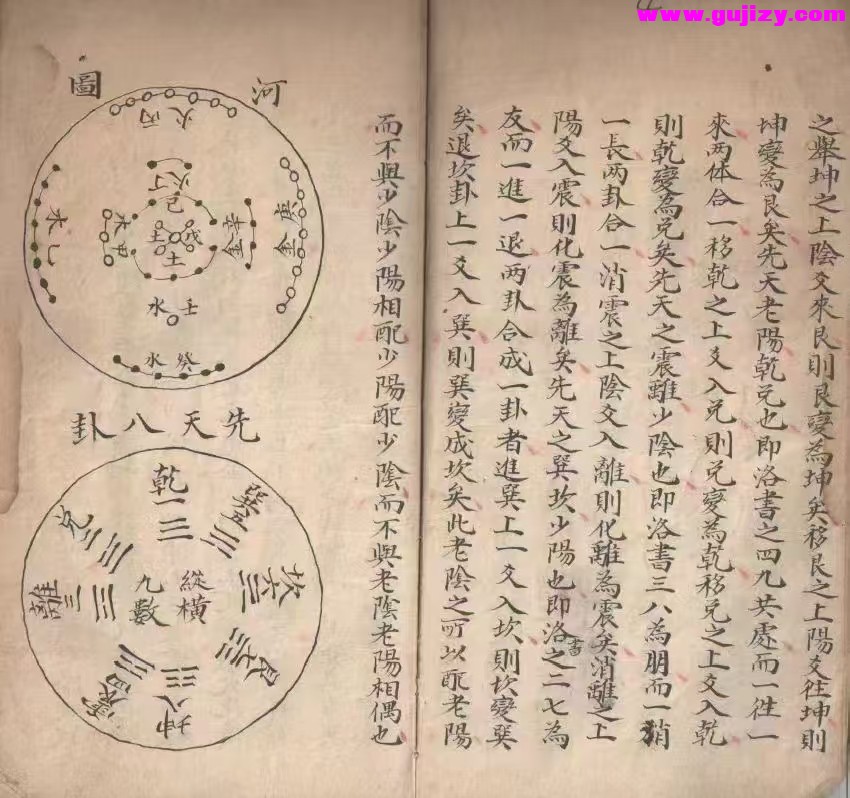 www.gujizy.com
之舉坤之上陰爻來艮則艮變為坤矣移艮之上陽爻往坤則
坤變為艮矣先天老陽乾兌也即洛書之四九共處而一往一
來两体合一移乾之上爻入兌則兌變為乾移兌之上爻入乾
則乾變為兌矣先天之震離少陰也即洛書三八為朋而一消
一長两卦合一消震之上陰爻入離則化離為震矣消離之上
陽爻入震則化震為離矣先天之巽坎少陽也即洛書之二七為
友而一進一退两卦合成一卦者進巽上一爻入坎則坎變巽
矣退坎卦上一爻入巽則巽變成坎矣此老陰之所以配老陽
而不與少陰少陽相配少陽配少陰而不與老陰老陽相偶也
河圖
丙火
丁火
己
戊
土
甲木
乙木
辛金
庚金
壬水
癸水
先天八卦
乾一
兌二
離三
震四
巽五
坎六
艮七
坤八
縱橫
九數